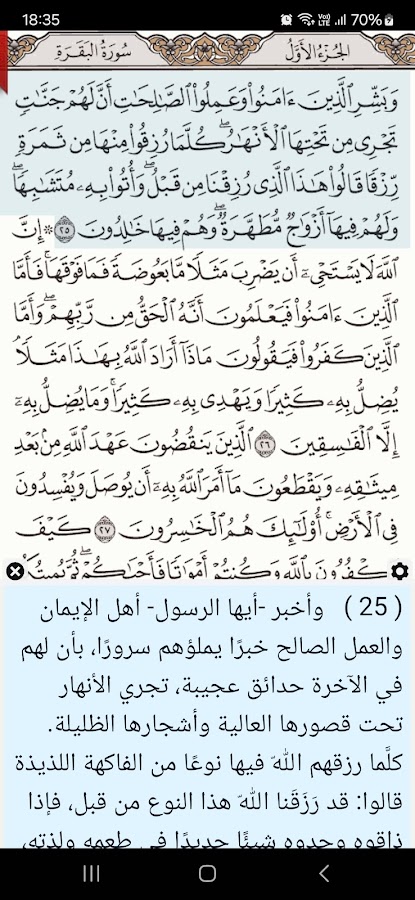 18:35
70%
الجزء الأول
سورة البقرة
وَبَشِّرِ ٱلَّذِينَ ءَامَنُوا۟ وَعَمِلُوا۟ ٱلصَّـٰلِحَـٰتِ أَنَّ لَهُمْ جَنَّـٰتٍ
تَجْرِى مِن تَحْتِهَا ٱلْأَنْهَـٰرُ ۖ كُلَّمَا رُزِقُوا۟ مِنْهَا مِن ثَمَرَةٍ
رِّزْقًا قَالُوا۟ هَـٰذَا ٱلَّذِى رُزِقْنَا مِن قَبْلُ ۖ وَأُتُوا۟ بِهِۦ مُتَشَـٰبِهًا ۖ
وَلَهُمْ فِيهَآ أَزْوَٰجٌ مُّطَهَّرَةٌ ۖ وَهُمْ فِيهَا خَـٰلِدُونَ ٢٥ ۞ إِنَّ
ٱللَّهَ لَا يَسْتَحْىِۦٓ أَن يَضْرِبَ مَثَلًا مَّا بَعُوضَةً فَمَا فَوْقَهَا ۚ فَأَمَّا
ٱلَّذِينَ ءَامَنُوا۟ فَيَعْلَمُونَ أَنَّهُ ٱلْحَقُّ مِن رَّبِّهِمْ ۖ وَأَمَّا
ٱلَّذِينَ كَفَرُوا۟ فَيَقُولُونَ مَاذَآ أَرَادَ ٱللَّهُ بِهَـٰذَا مَثَلًا ۘ
يُضِلُّ بِهِۦ كَثِيرًا وَيَهْدِى بِهِۦ كَثِيرًا ۚ وَمَا يُضِلُّ بِهِۦٓ
إِلَّا ٱلْفَـٰسِقِينَ ٢٦ ٱلَّذِينَ يَنقُضُونَ عَهْدَ ٱللَّهِ مِنۢ بَعْدِ
مِيثَـٰقِهِۦ وَيَقْطَعُونَ مَآ أَمَرَ ٱللَّهُ بِهِۦٓ أَن يُوصَلَ وَيُفْسِدُونَ
فِى ٱلْأَرْضِ ۚ أُو۟لَـٰٓئِكَ هُمُ ٱلْخَـٰسِرُونَ ٢٧ كَيْفَ
تَكْفُرُونَ بِٱللَّهِ وَكُنتُمْ أَمْوَٰتًا فَأَحْيَـٰكُمْ ۖ ثُمَّ يُمِيتُكُمْ
( 25 ) وأخبر -أيها الرسول- أهل الإيمان
والعمل الصالح خبرًا يملؤهم سرورًا، بأن لهم
في الآخرة حدائق عجيبة، تجري الأنهار
تحت قصورها العالية وأشجارها الظليلة.
كلَّما رزقهم الله فيها نوعًا من الفاكهة اللذيذة
قالوا: قد رَزَقَنا الله هذا النوع من قبل، فإذا
ذاقوه وجدوه شيئًا جديدًا في طعمه ولذته،